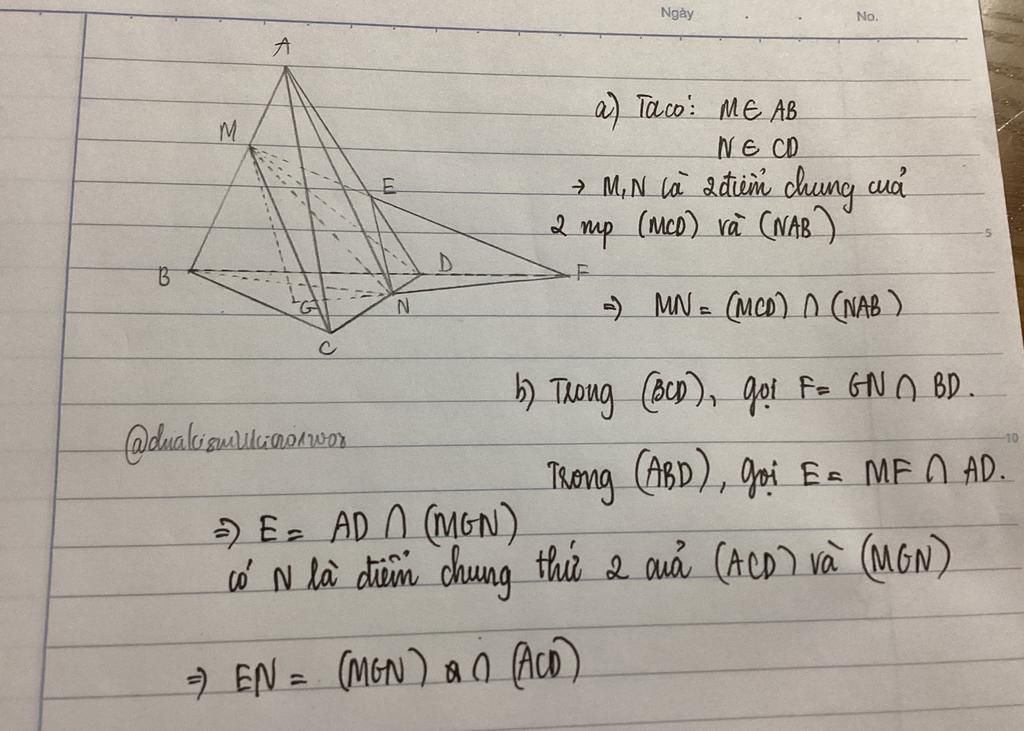 Ngày . . No.
A
a) Ta có: M ∈ AB
M
N ∈ CD
E
→ M, N là 2 điểm chung cuả
2 mp (MCD) và (NAB)
5
B D F
G N
⇒ MN = (MCD) ∩ (NAB)
C
b) Trong (BCD), gọi F = GN ∩ BD.
10
Trong (ABD), gọi E = MF ∩ AD.
⇒ E = AD ∩ (MGN)
có N là điểm chung thứ 2 cuả (ACD) và (MGN)
⇒ EN = (MGN) ∩ (ACD)